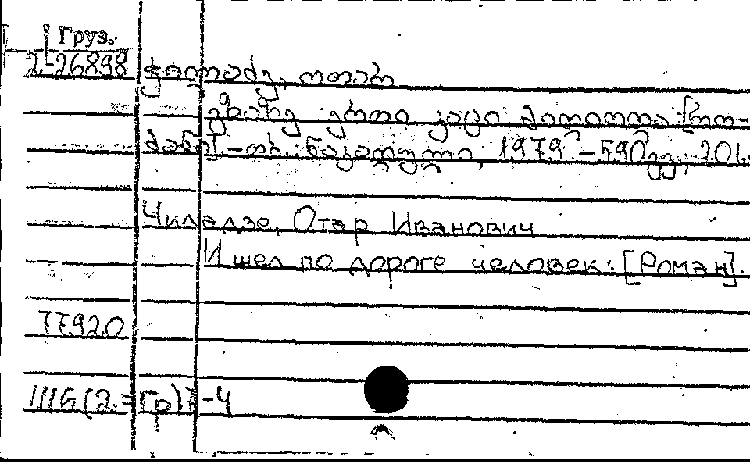 Груз.
2-26898 ჭილაძე, ოთარ
გზაზე ერთი კაცი მიდიოდა: [რო-
მანი] -თბ.: ნაკადული, 1979 -590გვ., 20
Чиладзе, Отар Иванович
Шел по дороге человек: [Роман].
77920
Ш6(2=Гр)7-4